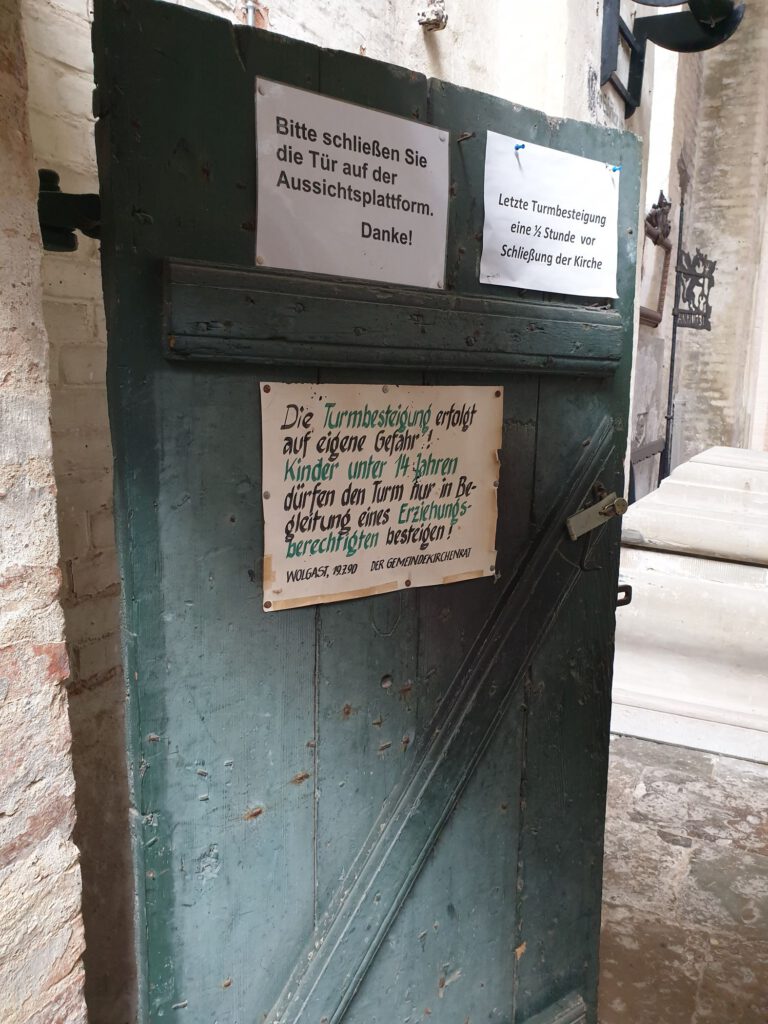 Bitte schließen Sie
die Tür auf der
Aussichtsplattform.
Danke!
Letzte Turmbesteigung
eine ½ Stunde vor
Schließung der Kirche
Die Turmbesteigung erfolgt
auf eigene Gefahr!
Kinder unter 14 Jahren
dürfen den Turm nur in Be-
gleitung eines Erziehungs-
berechtigten besteigen!
WOLGAST, 19.7.90 DER GEMEINDEKIRCHENRAT